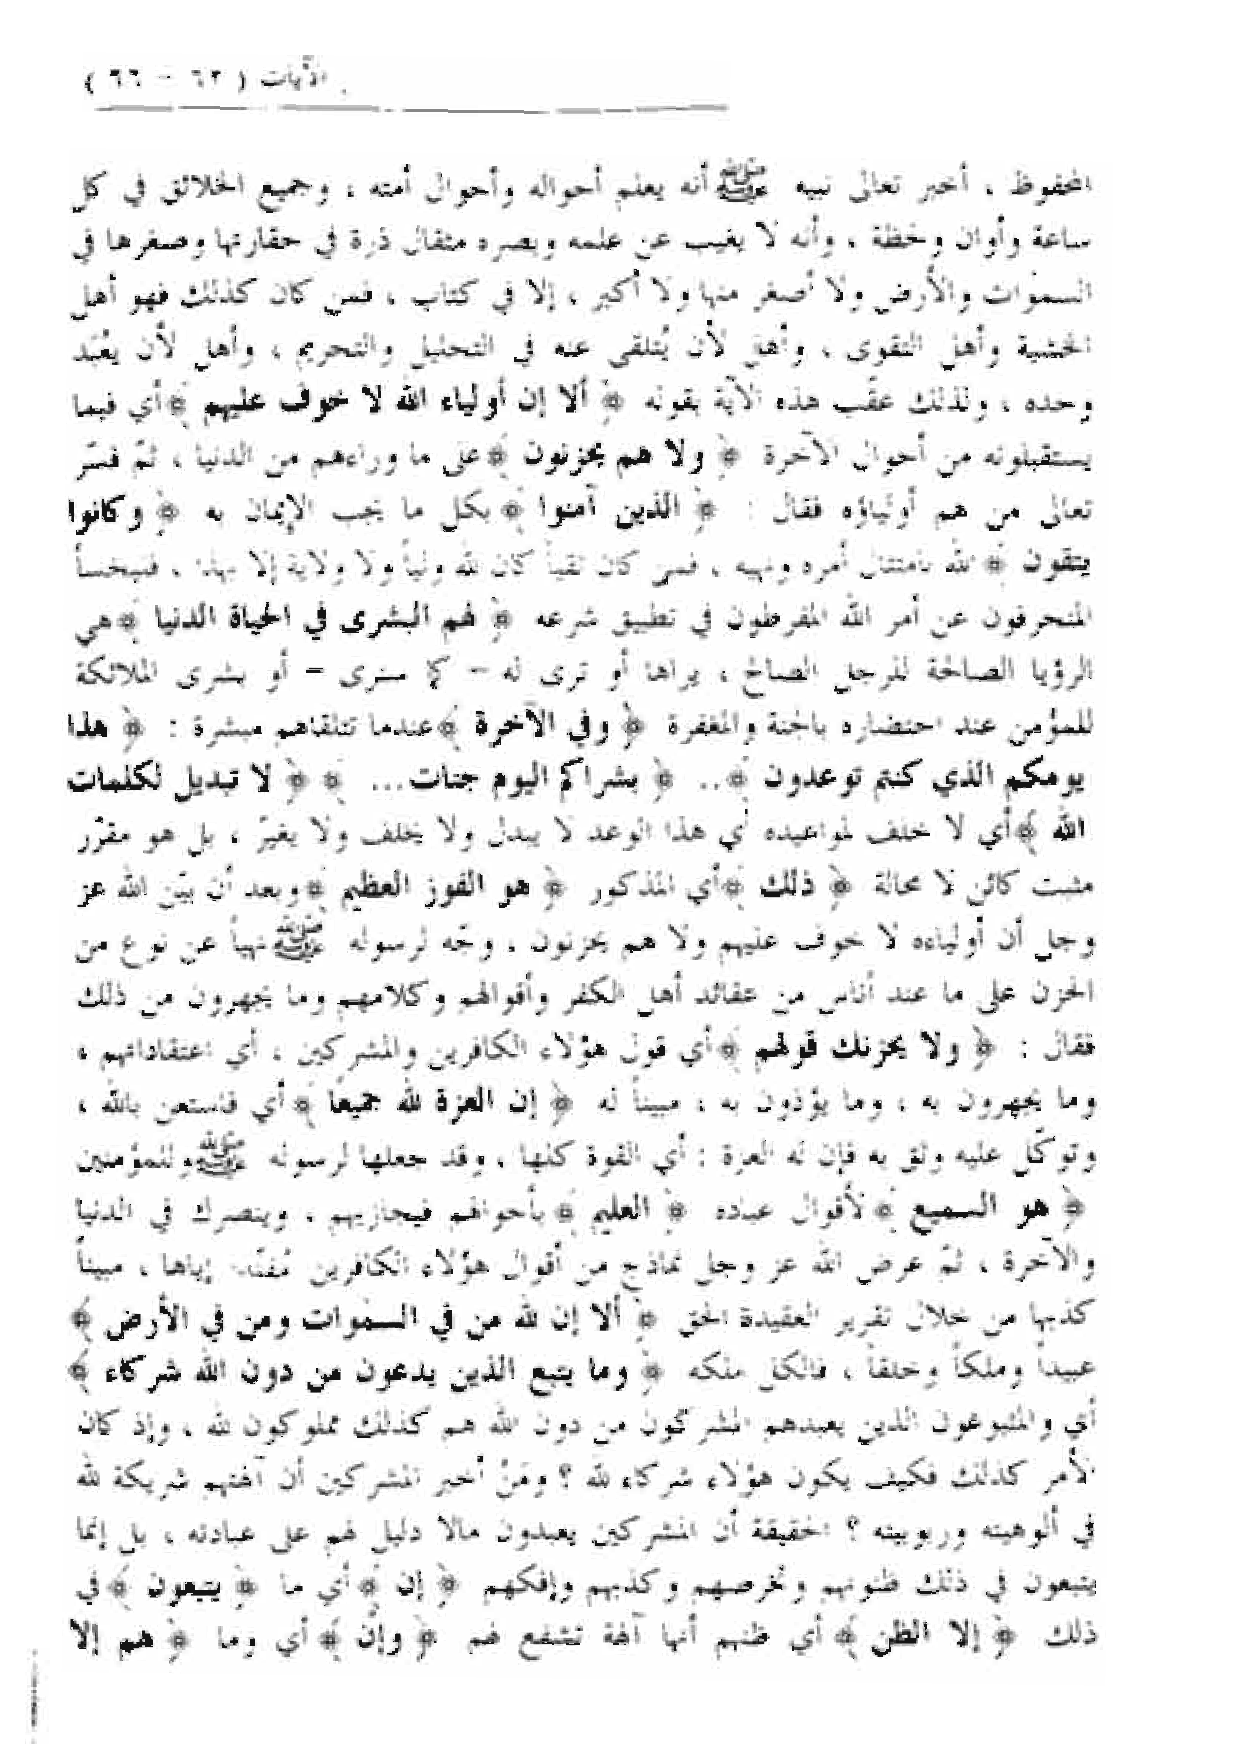 الآيات ( ٦٢ - ٦٦ )
المحفوظ ، أخبر تعالى نبيه ﷺ أنه يعلم أحواله وأحوال أمته ، وجميع الخلائق في كل
ساعة وأوان ولحظة ، وأنه لا يغيب عن علمه وبصره مثقال ذرة في حقارتها وصغرها في
السموات والأرض ولا أصغر منها ولا أكبر ، إلا في كتاب ، فمن كان كذلك فهو أهل
الخشية وأهل التقوى ، وأهل لأن يُتلقى عنه في التحليل والتحريم ، وأهل لأن يُعْبَد
وحده ، ولذلك عقّب هذه الآية بقوله ﴿ ألا إن أولياء الله لا خوف عليهم ﴾ أي فيما
يستقبلونه من أحوال الآخرة ﴿ ولا هم يحزنون ﴾ على ما وراءهم من الدنيا ، ثمّ فسّر
تعالى من هم أولياؤه فقال : ﴿ الذين آمنوا ﴾ بكل ما يجب الإيمان به ﴿ وكانوا
يتقون ﴾ الله بامتثال أمره ونهيه ، فمن كان تقياً كان لله ولياً ولا ولاية إلا بهذا ، فليخسأ
المنحرفون عن أمر الله المفرطون في تطبيق شرعه ﴿ لهم البشرى في الحياة الدنيا ﴾ هي
الرؤيا الصالحة للرجل الصالح ، يراها أو ترى له - كما سنرى - أو بشرى الملائكة
للمؤمن عند احتضاره بالجنة والمغفرة ﴿ وفي الآخرة ﴾ عندما تتلقاهم مبشرة : ﴿ هذا
يومكم الذي كنتم توعدون ﴾.. ﴿ بشراكم اليوم جنات... ﴾ ﴿ لا تبديل لكلمات
الله ﴾ أي لا خلف لمواعيده أي هذا الوعد لا يبدل ولا يخلف ولا يغيّر ، بل هو مقرّر
مثبت كائن لا محالة ﴿ ذلك ﴾ أي المذكور ﴿ هو الفوز العظيم ﴾ وبعد أن بيّن الله عز
وجل أن أولياءه لا خوف عليهم ولا هم يحزنون ، وجّه لرسوله ﷺ نهياً عن نوع من
الحزن على ما عند أناس من عقائد أهل الكفر وأقوالهم وكلامهم وما يجهرون من ذلك
فقال : ﴿ ولا يحزنك قولهم ﴾ أي قول هؤلاء الكافرين والمشركين ، أي اعتقاداتهم ،
وما يجهرون به ، وما يؤذون به ، مبيناً له ﴿ إن العزة لله جميعاً ﴾ أي فاستعن بالله ،
وتوكّل عليه وثق به فإن له العزة : أي القوة كلها ، وقد جعلها لرسوله ﷺ وللمؤمنين
﴿ هو السميع ﴾ لأقوال عباده ﴿ العليم ﴾ بأحوالهم فيجازيهم ، وينصرك في الدنيا
والآخرة ، ثمّ عرض الله عز وجل نماذج من أقوال هؤلاء الكافرين مُفنّداً إياها ، مبيناً
كذبها من خلال تقرير العقيدة الحق ﴿ ألا إن لله من في السموات ومن في الأرض ﴾
عبيداً وملكاً وخلقاً ، فالكل ملكه ﴿ وما يتبع الذين يدعون من دون الله شركاء ﴾
أي والمتبوعون الذين يعبدهم المشركون من دون الله هم كذلك مملوكون لله ، وإذ كان
الأمر كذلك فكيف يكون هؤلاء شركاء لله ؟ ومَنْ أخبر المشركين أن آلهتهم شريكة لله
في ألوهيته وربوبيته ؟ الحقيقة أن المشركين يعبدون مالا دليل لهم على عبادته ، بل إنما
يتبعون في ذلك ظنونهم وتخرصهم وكذبهم وإفكهم ﴿ إن ﴾ أي ما ﴿ يتبعون ﴾ في
ذلك ﴿ إلا الظن ﴾ أي ظنهم أنها آلهة تشفع لهم ﴿ وإن ﴾ أي وما ﴿ هم إلا